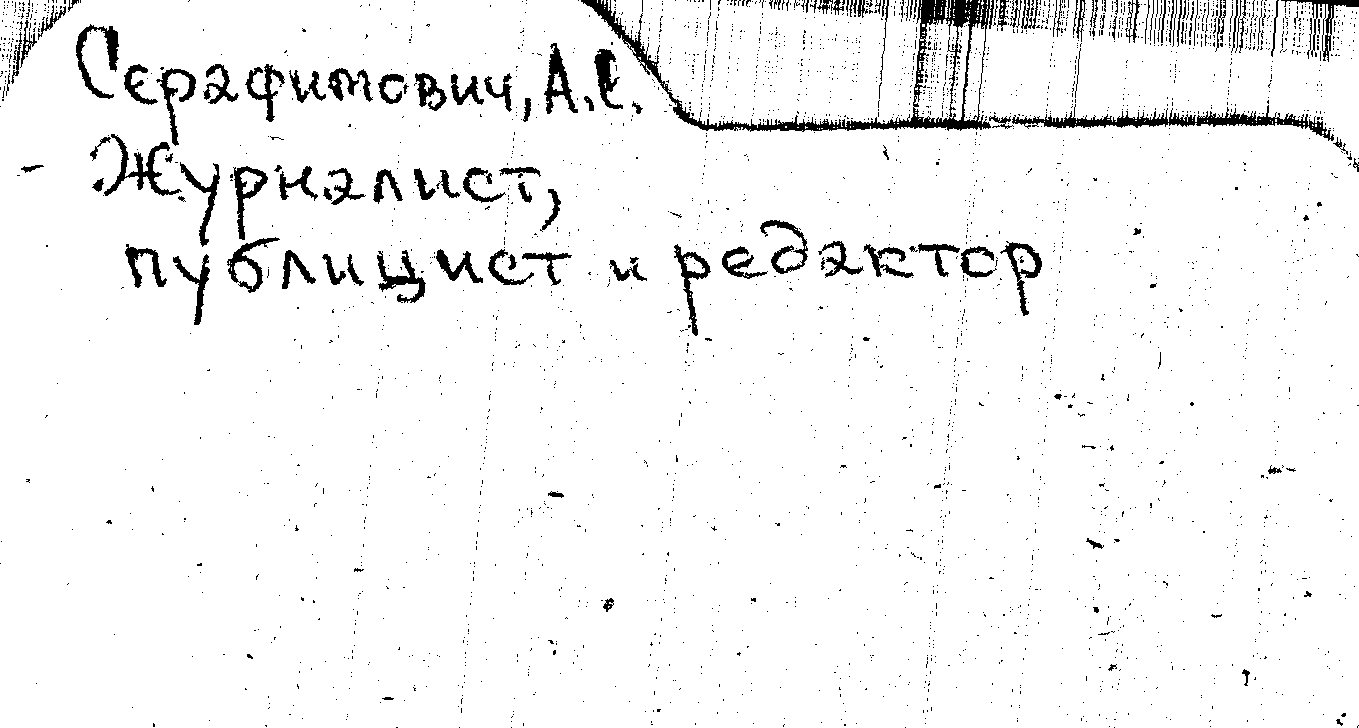 Серафимович, А.С.
Журналист,
публицист и редактор